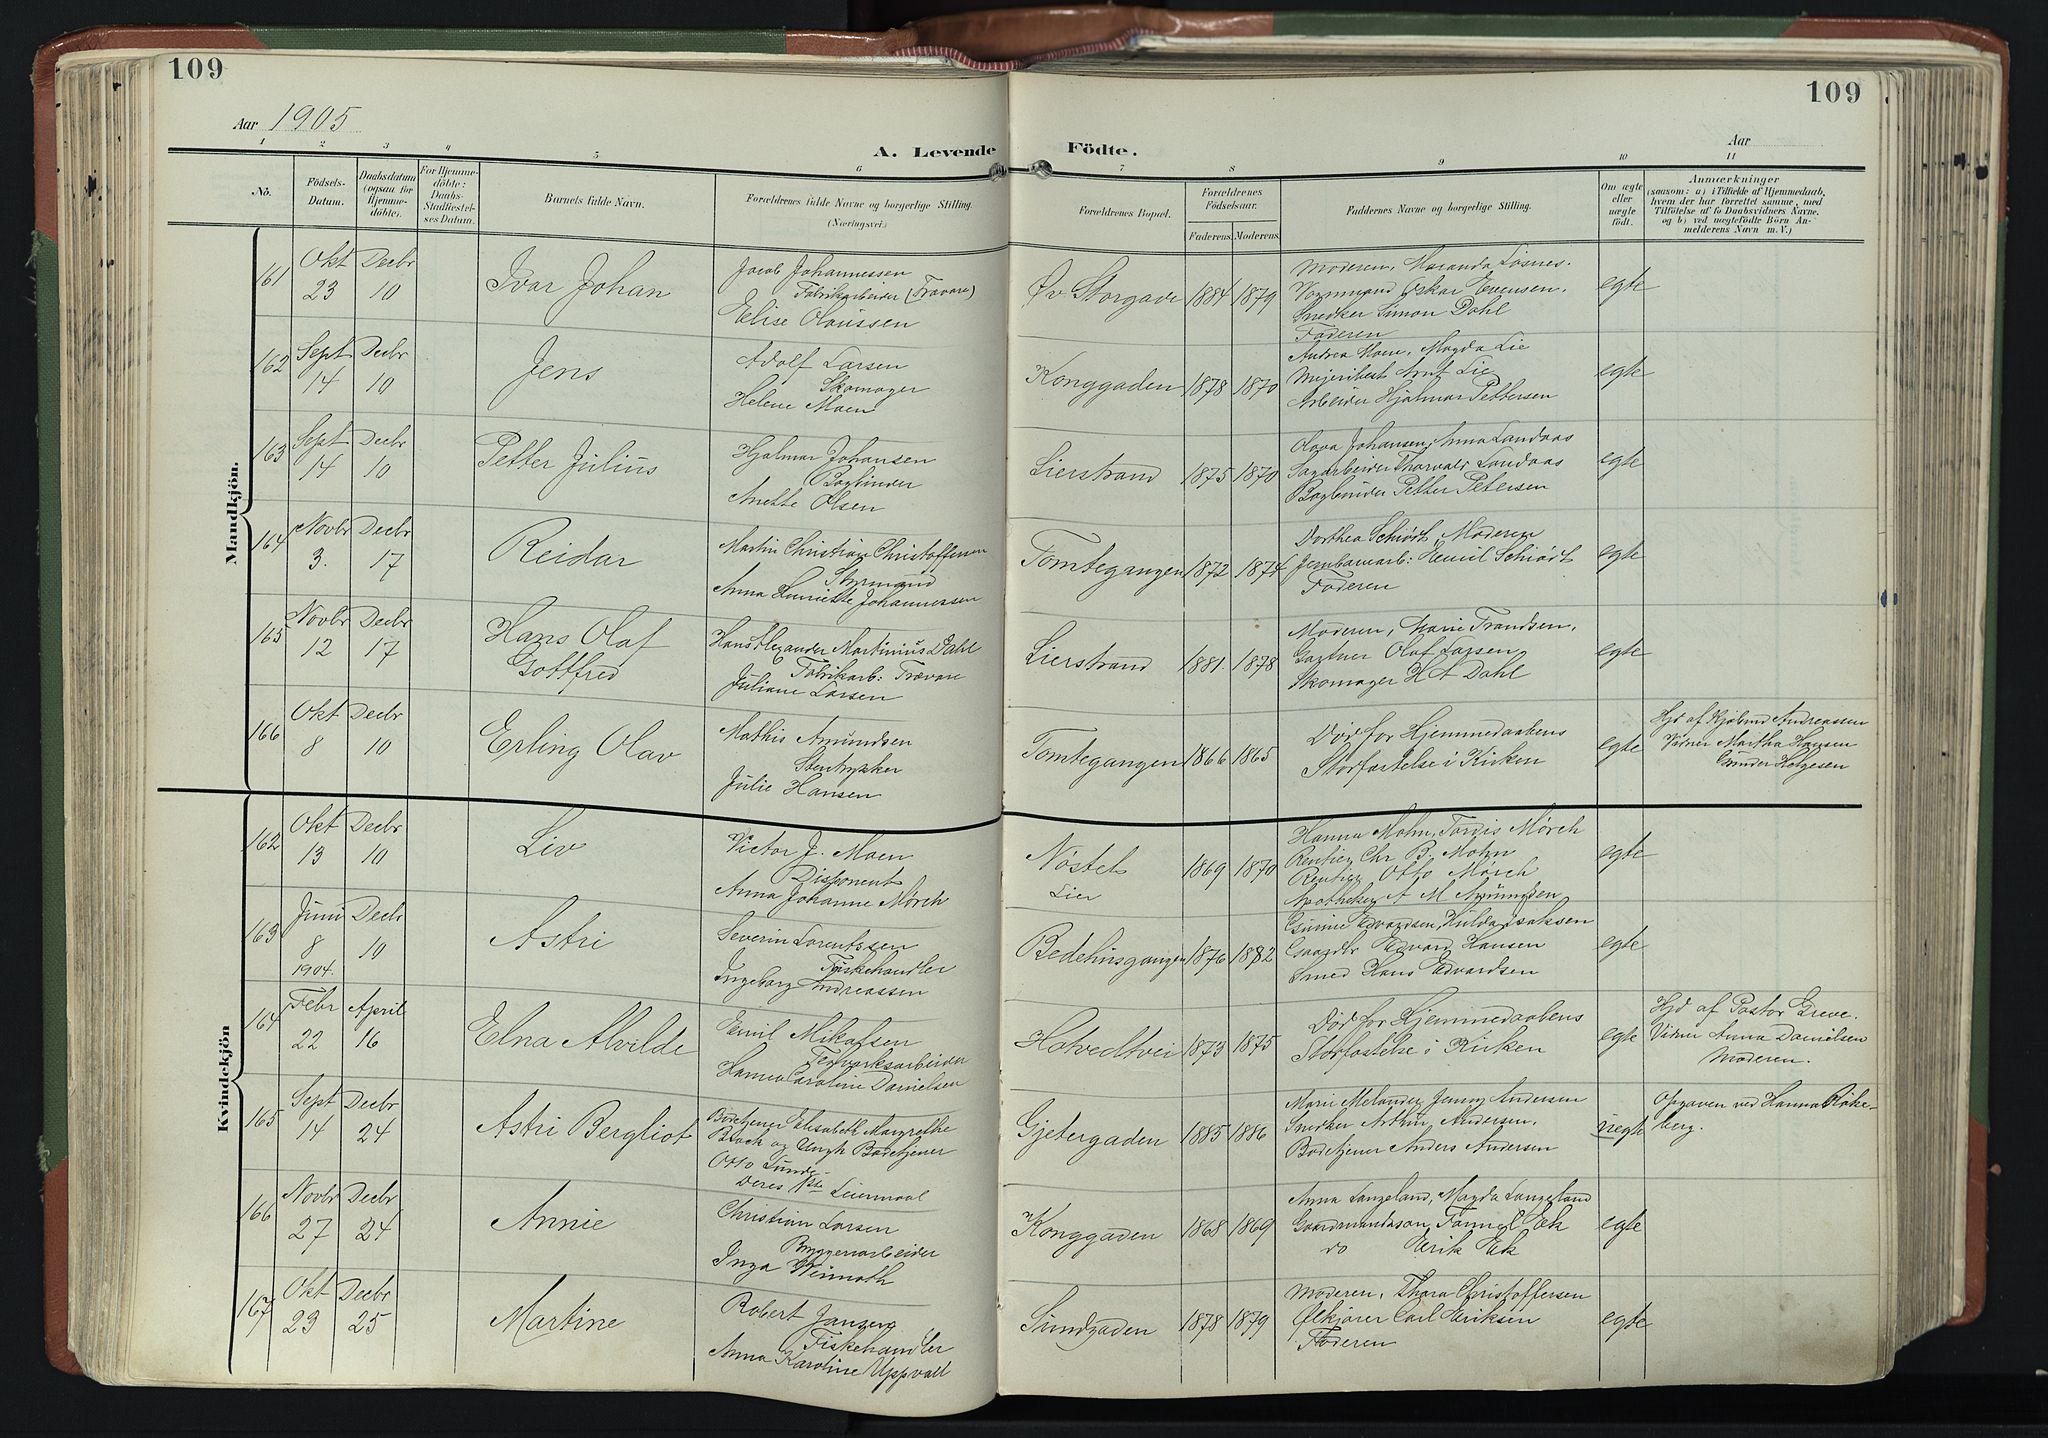 109
109
Aar 1905
Aar
A. Levende Födte.
1 2 3 4 5 6 7 8 9 10 11
No.
Födsels-Datum.
Daabsdatum (ogsaa for Hjemmedöbte).
For Hjemmedöbte: Daabs-Stadfæstelses Datum.
Barnets fulde Navn.
Forældrenes fulde Navne og borgerlige Stilling.
(Næringsvei.)
Forældrenes Bopæl.
Forældrenes Födselsaar.
Faderens. Moderens.
Faddernes Navne og borgerlige Stilling.
Om ægte eller uægte födt.
Anmærkninger
(saasom: a) i Tilfælde af Hjemmedaab,
hvem der har forrettet samme, med
Tilföielse af to Daabsvidners Navne,
og b) ved uegtefödte Börn An-
melderens Navn m. V.)
Mandkjön.
161 Okt 23 Decbr 10
Ivar Johan
Jacob Johannessen
Fabrikarbeider (Trævare)
Elise Olaussen
Øv. Storgade 1884 1879
Moderen, Maranda Losnes.
Vognmand Oskar Evensen.
Snedker Simon Dahl
Faderen
egte
162 Sept 14 Decbr 10
Jens
Adolf Larsen
Skomager
Helene Moen
Konggaden 1878 1870
Andrea Moen, Magda Lie
Mejeribest Arnt Lie
Arbeider Hjalmar Pettersen
egte
163 Sept 14 Decbr 10
Petter Julius
Hjalmar Johansen
Bogbinder
Anette Olsen
Lierstrand 1875 1870
Olava Johansen, Anna Landaas
Sagarbeider Thorvald Landaas
Bogbinder Petter Petersen
egte
164 Novbr 3. Decbr 17
Reidar
Martin Christian Christoffersen
Styrmand
Anna Henriette Johannessen
Tomtegangen 1872 1874
Dorthea Schiødt, Moderen
Jernbanearb: Emil Schiødt
Faderen
egte
165 Novbr 12 Decbr 17
Hans Olaf
Gottfred
Hans Alexander Martinius Dahl
Fabrikarb: Trævare
Juliane Larsen
Lierstrand 1881 1878
Moderen, Marie Frandsen,
Gartner Olaf Larsen
Skomager H A Dahl
egte
166 Okt 8 Decbr 10
Erling Olav
Mathis Amundsen
Stentrykker
Julie Hansen
Tomtegangen 1866 1865
Død før Hjemmedaabens
Stadfæstelse i Kirken
egte
Hjd af Andreassen
Vidner Martha Hansen
Gunder Helgesen
Kvindekjön
162 Okt 13 Decbr 10
Liv
Victor J. Moen
Disponent
Anna Johanne Mørch
Nøsted
Lier
1869 1870
Hanna Mohn, Tordis Mørch
Rentier Chr B. Mohn
Rentier Otto Mørch
Apotheker A M Amundsen
egte
163 Juni 8 1904. Decbr 10
Astri
Severin Lorentssen
Fiskehandler
Ingeborg Andreassen
Bedehusgangen 1876 1882
Gunine Edvardsen, Hulda Isaksen
Gaardbr Edvard Hansen
Smed Hans Edvardsen
egte
164 Febr 22 April 16
Elna Alvilde
Emil Mikalsen
Teglværksarbeider
Hanna Caroline Danielsen
Hotvedtvei 1873 1875
Død før Hjemmedaabens
Stadfæstelse i Kirken
egte
Hjd af Pastor Greve.
Vidner Anna Danielsen
Moderen.
165 Sept 14 Decbr 24
Astri Bergliot
Bødtjener Elisabeth Margrethe
Block og Ungk Bødtjener
Otto Lunde
Deres 1ste Leiermaal
Gjetergaden 1885 1886
Marie Melander, Jenny Andersen
Snedker Arthur Andersen,
Bødtjener Anders Andersen
uegte
Opgaven ved Hanna Røke-
berg.
166 Novbr 27 Decbr 24
Annie
Christian Larsen
Bryggeriarbeider
Inga Weinoth
Konggaden 1868 1869
Anna Langeland, Magda Langeland
Gaardmandssøn Eek
do Erik Eek
egte
167 Okt 23 Decbr 25
Martine
Robert Jansen
Fiskehandler
Anna Karoline Uppvall
Sundgaden 1878 1879
Moderen, Thora Christoffersen
Ølkjører Carl Eriksen
Faderen
egte